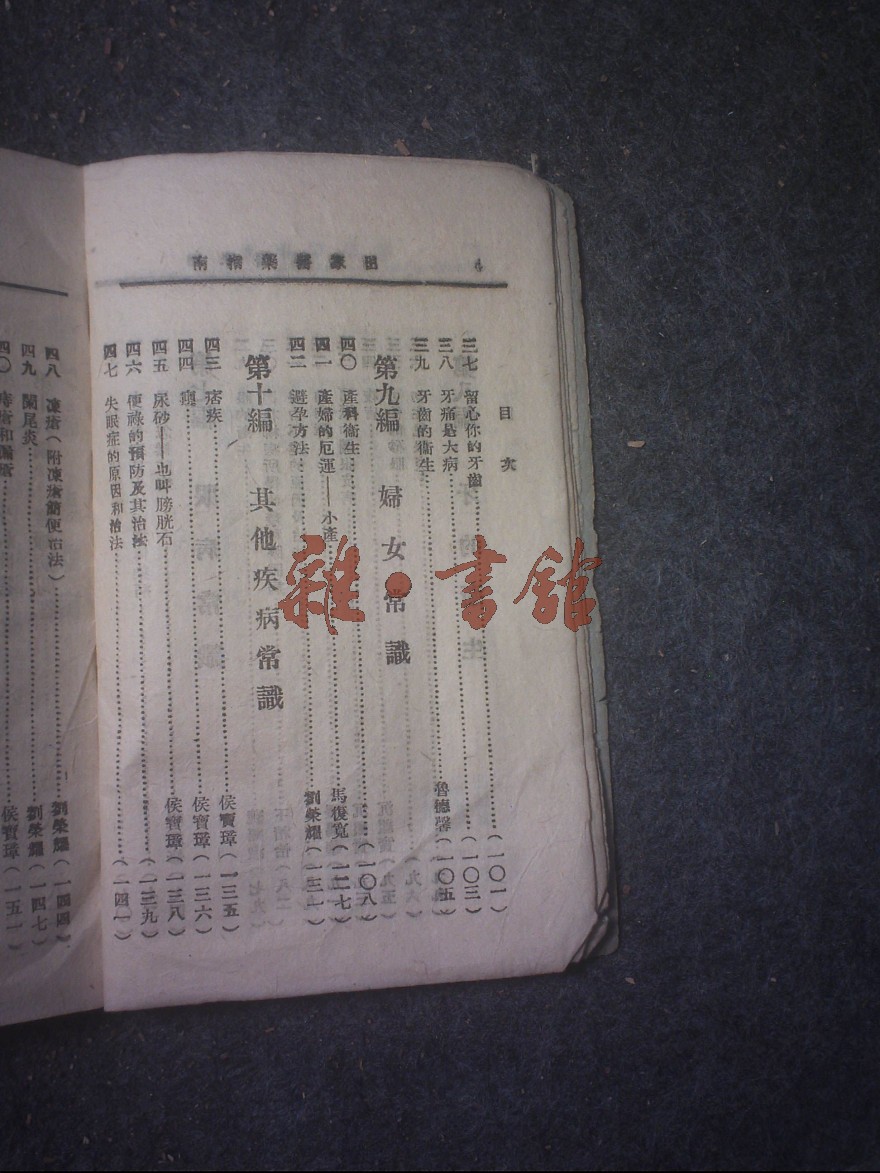 4
田家醫藥指南
目次
三七 留心你的牙齒……(一〇一)
三八 牙痛是大病……(一〇三)
三九 牙齒的衞生……魯德馨(一〇五)
第九編 婦女常識
四〇 產科衞生……(一〇八)
四一 產婦的厄運——小產……馬復寬(一二七)
四二 避孕方法……劉榮耀(一三一)
第十編 其他疾病常識
四三 痞疾……侯寶璋(一三五)
四四 瘤……侯寶璋(一三六)
四五 尿砂——也叫膀胱石……侯寶璋(一三八)
四六 便祕的預防及其治法……(一三九)
四七 失眠症的原因和治法……(一四一)
四八 凍瘡(附凍瘡簡便治法)……劉榮耀(一四四)
四九 闌尾炎……劉榮耀(一四七)
侯寶璋(一五一)
雜·書館